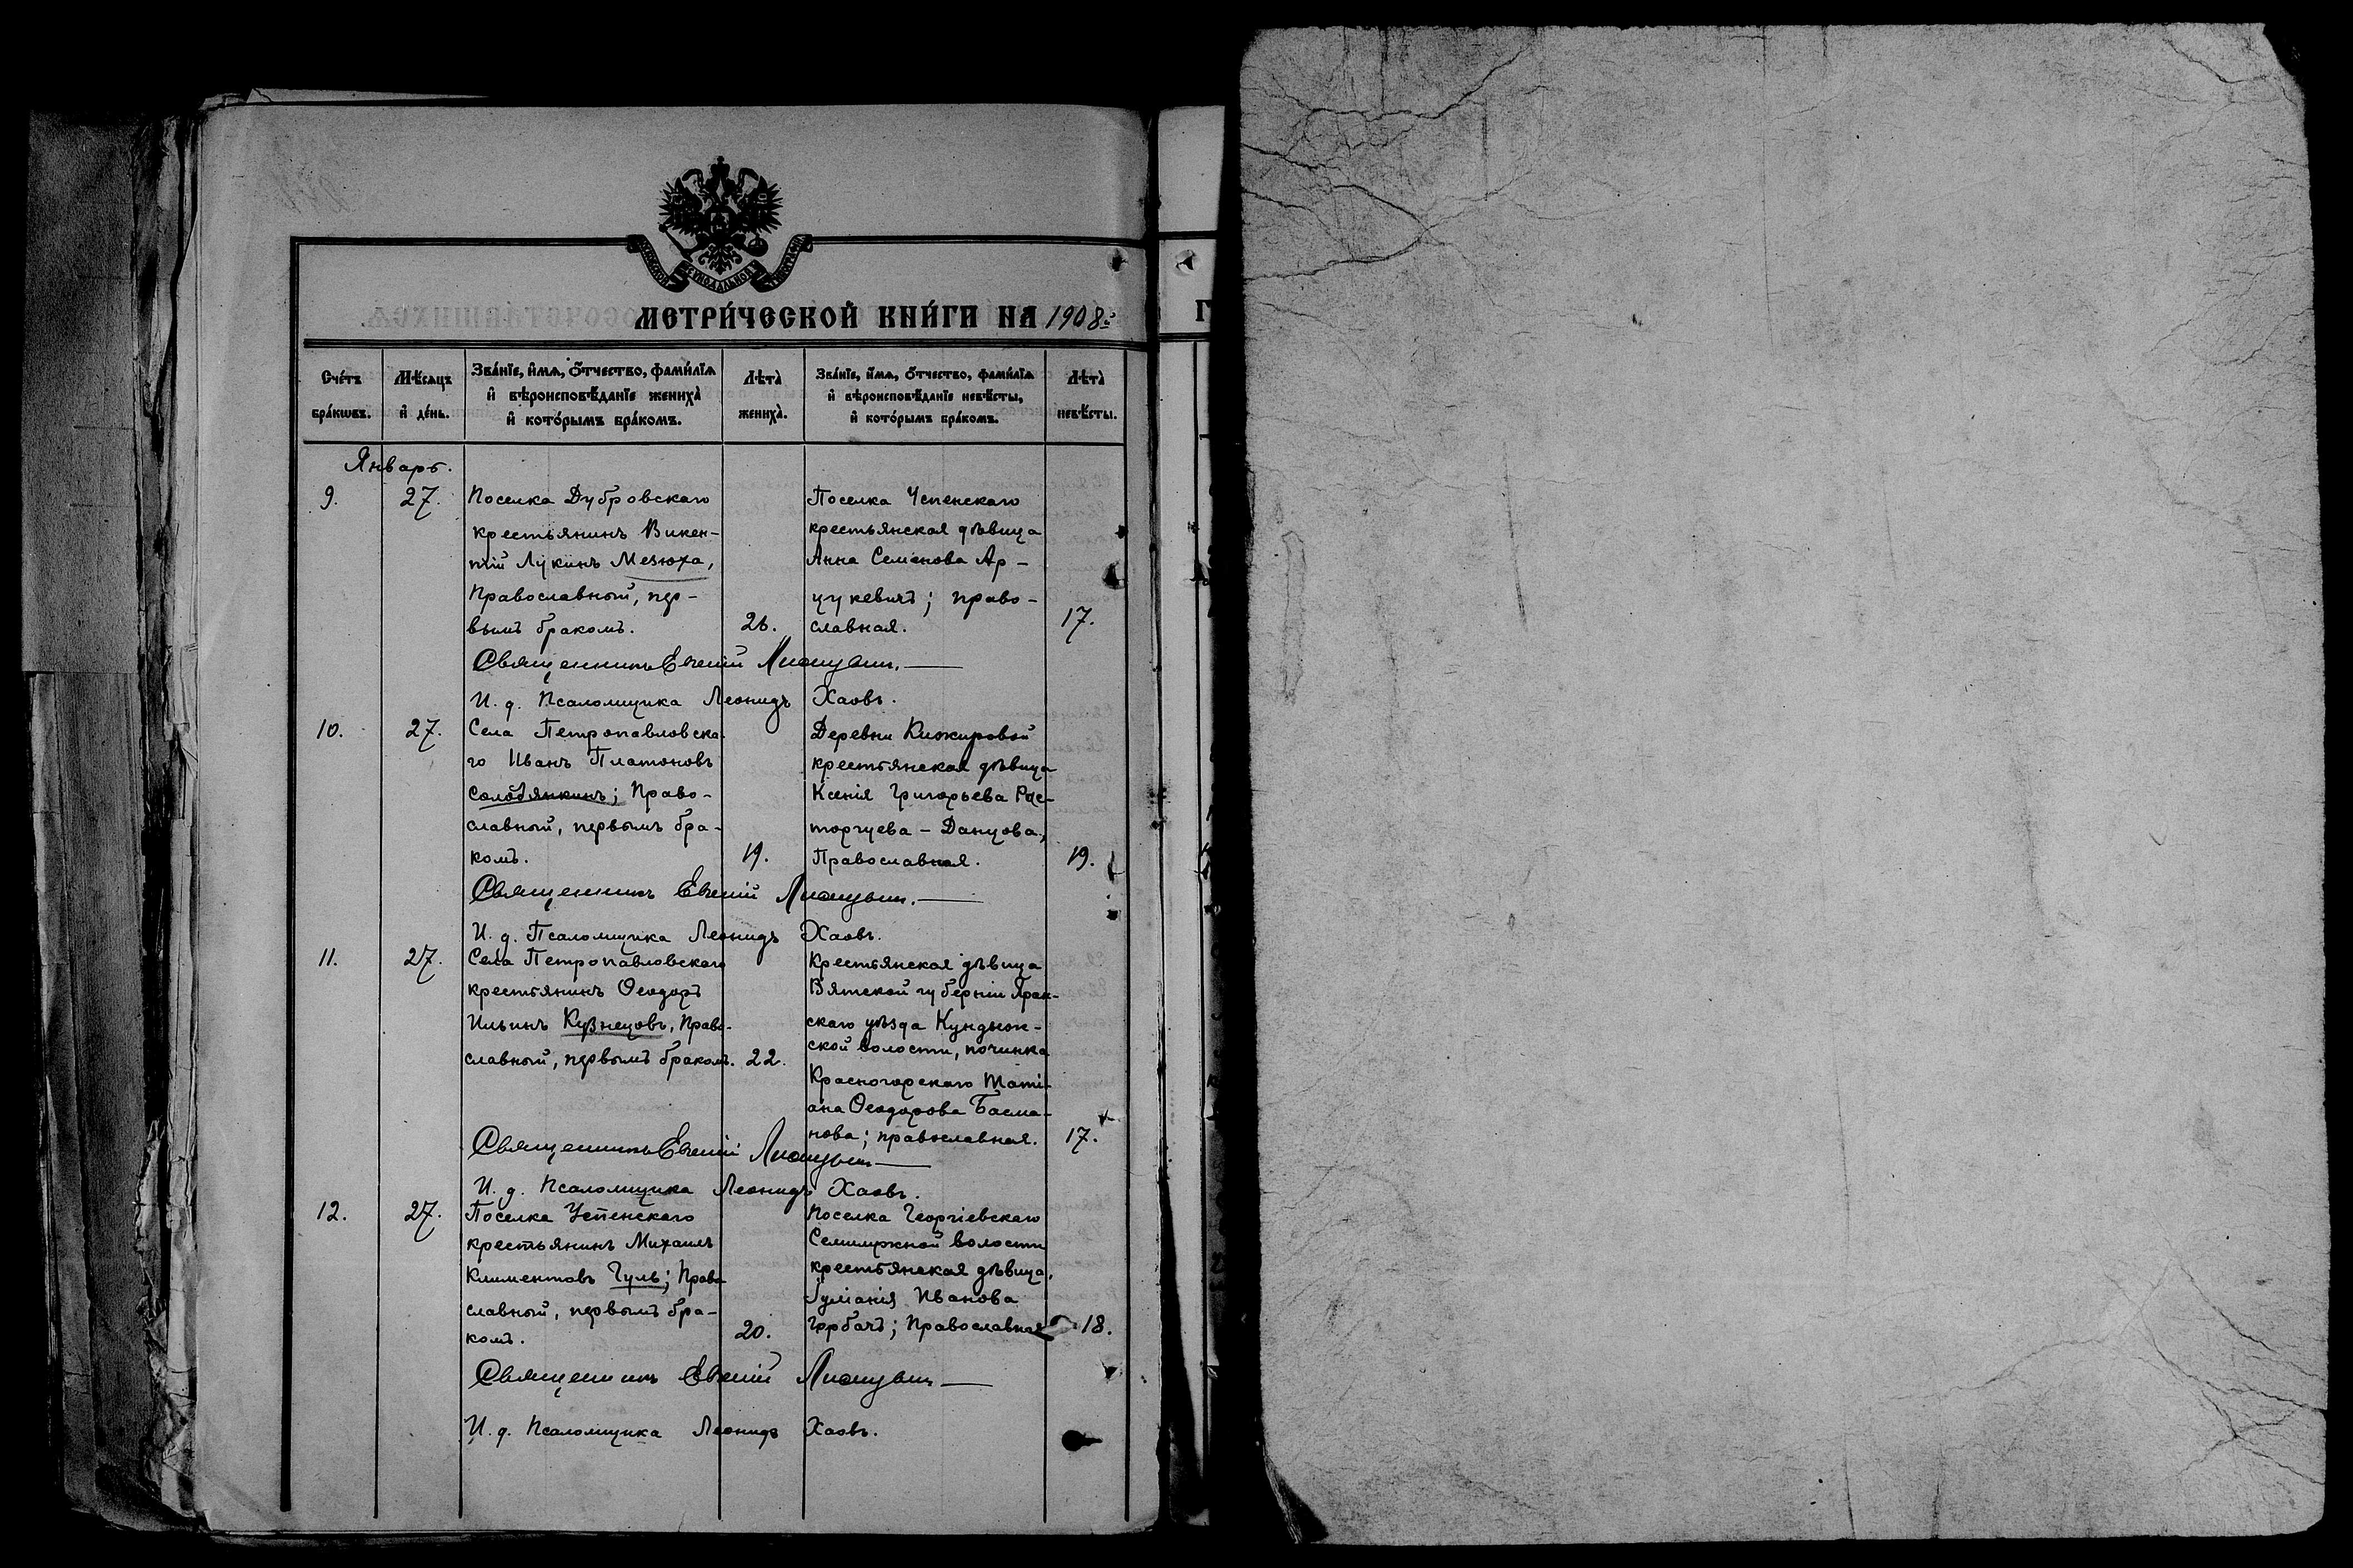 МЕТРИ́ЧЕСКОЙ КНИ́ГИ НА 1908й
Сче́тъ бра́кѡвъ.
Мѣ́сѧцъ и҆ де́нь.
Зва́нїе, и҆́мѧ, ѻ҆́тчество, фами́лїѧ и҆ вѣроисповѣ́данїе жениха̀ и҆ кото́рымъ бра́комъ.
Лѣта̀ жениха̀.
Зва́нїе, и҆́мѧ, ѻ҆́тчество, фами́лїѧ и҆ вѣроисповѣ́данїе невѣ́сты, и҆ кото́рымъ бра́комъ.
Лѣта̀ невѣ́сты.
Январь.
9.
27.
Поселка Дубровскаго
крестьянинъ Викен-
тій Лукинъ Мезюха,
Православный, пер-
вымъ бракомъ.
26.
Поселка Успенскаго
крестьянская дѣвица
Анна Семенова Ар-
цукевичъ; право-
славная.
17.
Священникъ Евгеній
И. д. Псаломщика Леонидъ Хаовъ.
10.
27.
Села Петропавловска-
го Иванъ Платоновъ
Солодянкинъ; Право-
славный, первымъ бра-
комъ.
19.
Деревни Кижировой
крестьянская дѣвица
Ксенія Григорьева Рас-
торгуева - Данцова,
Православная.
19.
Священникъ Евгеній
И. д. Псаломщика Леонидъ Хаовъ.
11.
27.
Села Петропавловскаго
крестьянинъ Ѳеодоръ
Ильинъ Кузнецовъ, Право-
славный, первымъ бракомъ.
22.
Крестьянская дѣвица
Вятской губерніи Яран-
скаго уѣзда
ской волости, починка
Красногорскаго Таті-
ана Ѳеодорова Басма-
нова; православная.
17.
Священникъ Евгеній
И. д. Псаломщика Леонидъ Хаовъ.
12.
27.
Поселка Успенскаго
крестьянинъ Михаилъ
Климентовъ Гуль; Право-
славный, первымъ бра-
комъ.
20.
Поселка Георгіевскаго
Семилужной волости
крестьянская дѣвица,
Іуліанія Иванова
Горбачъ; Православная
18.
Священникъ Евгеній
И. д. Псаломщика Леонидъ Хаовъ.